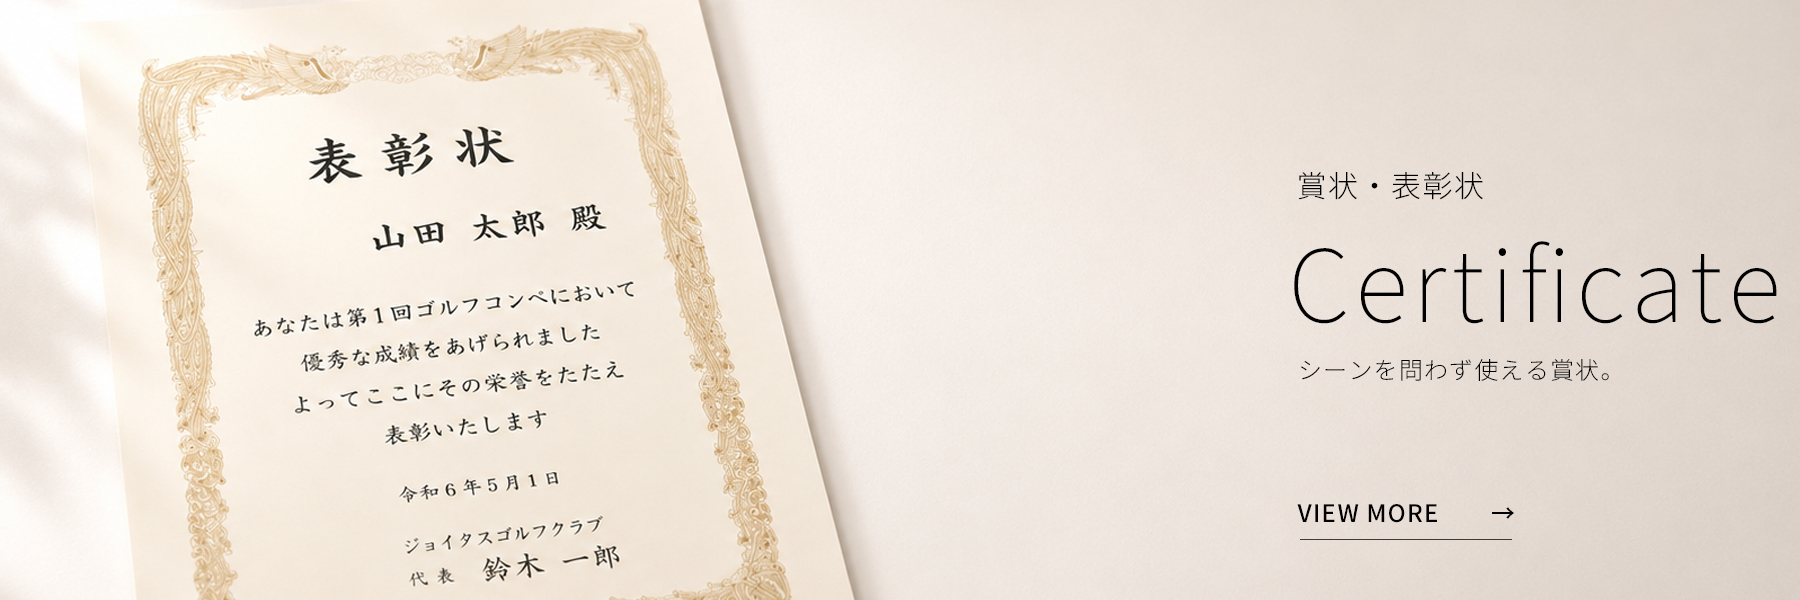 表彰状
山田 太郎 殿
あなたは第1回ゴルフコンペにおいて
優秀な成績をあげられました
よってここにその栄誉をたたえ
表彰いたします
令和6年5月1日
ジョイタスゴルフクラブ
代表 鈴木 一郎
賞状・表彰状
Certificate
シーンを問わず使える賞状。
VIEW MORE →